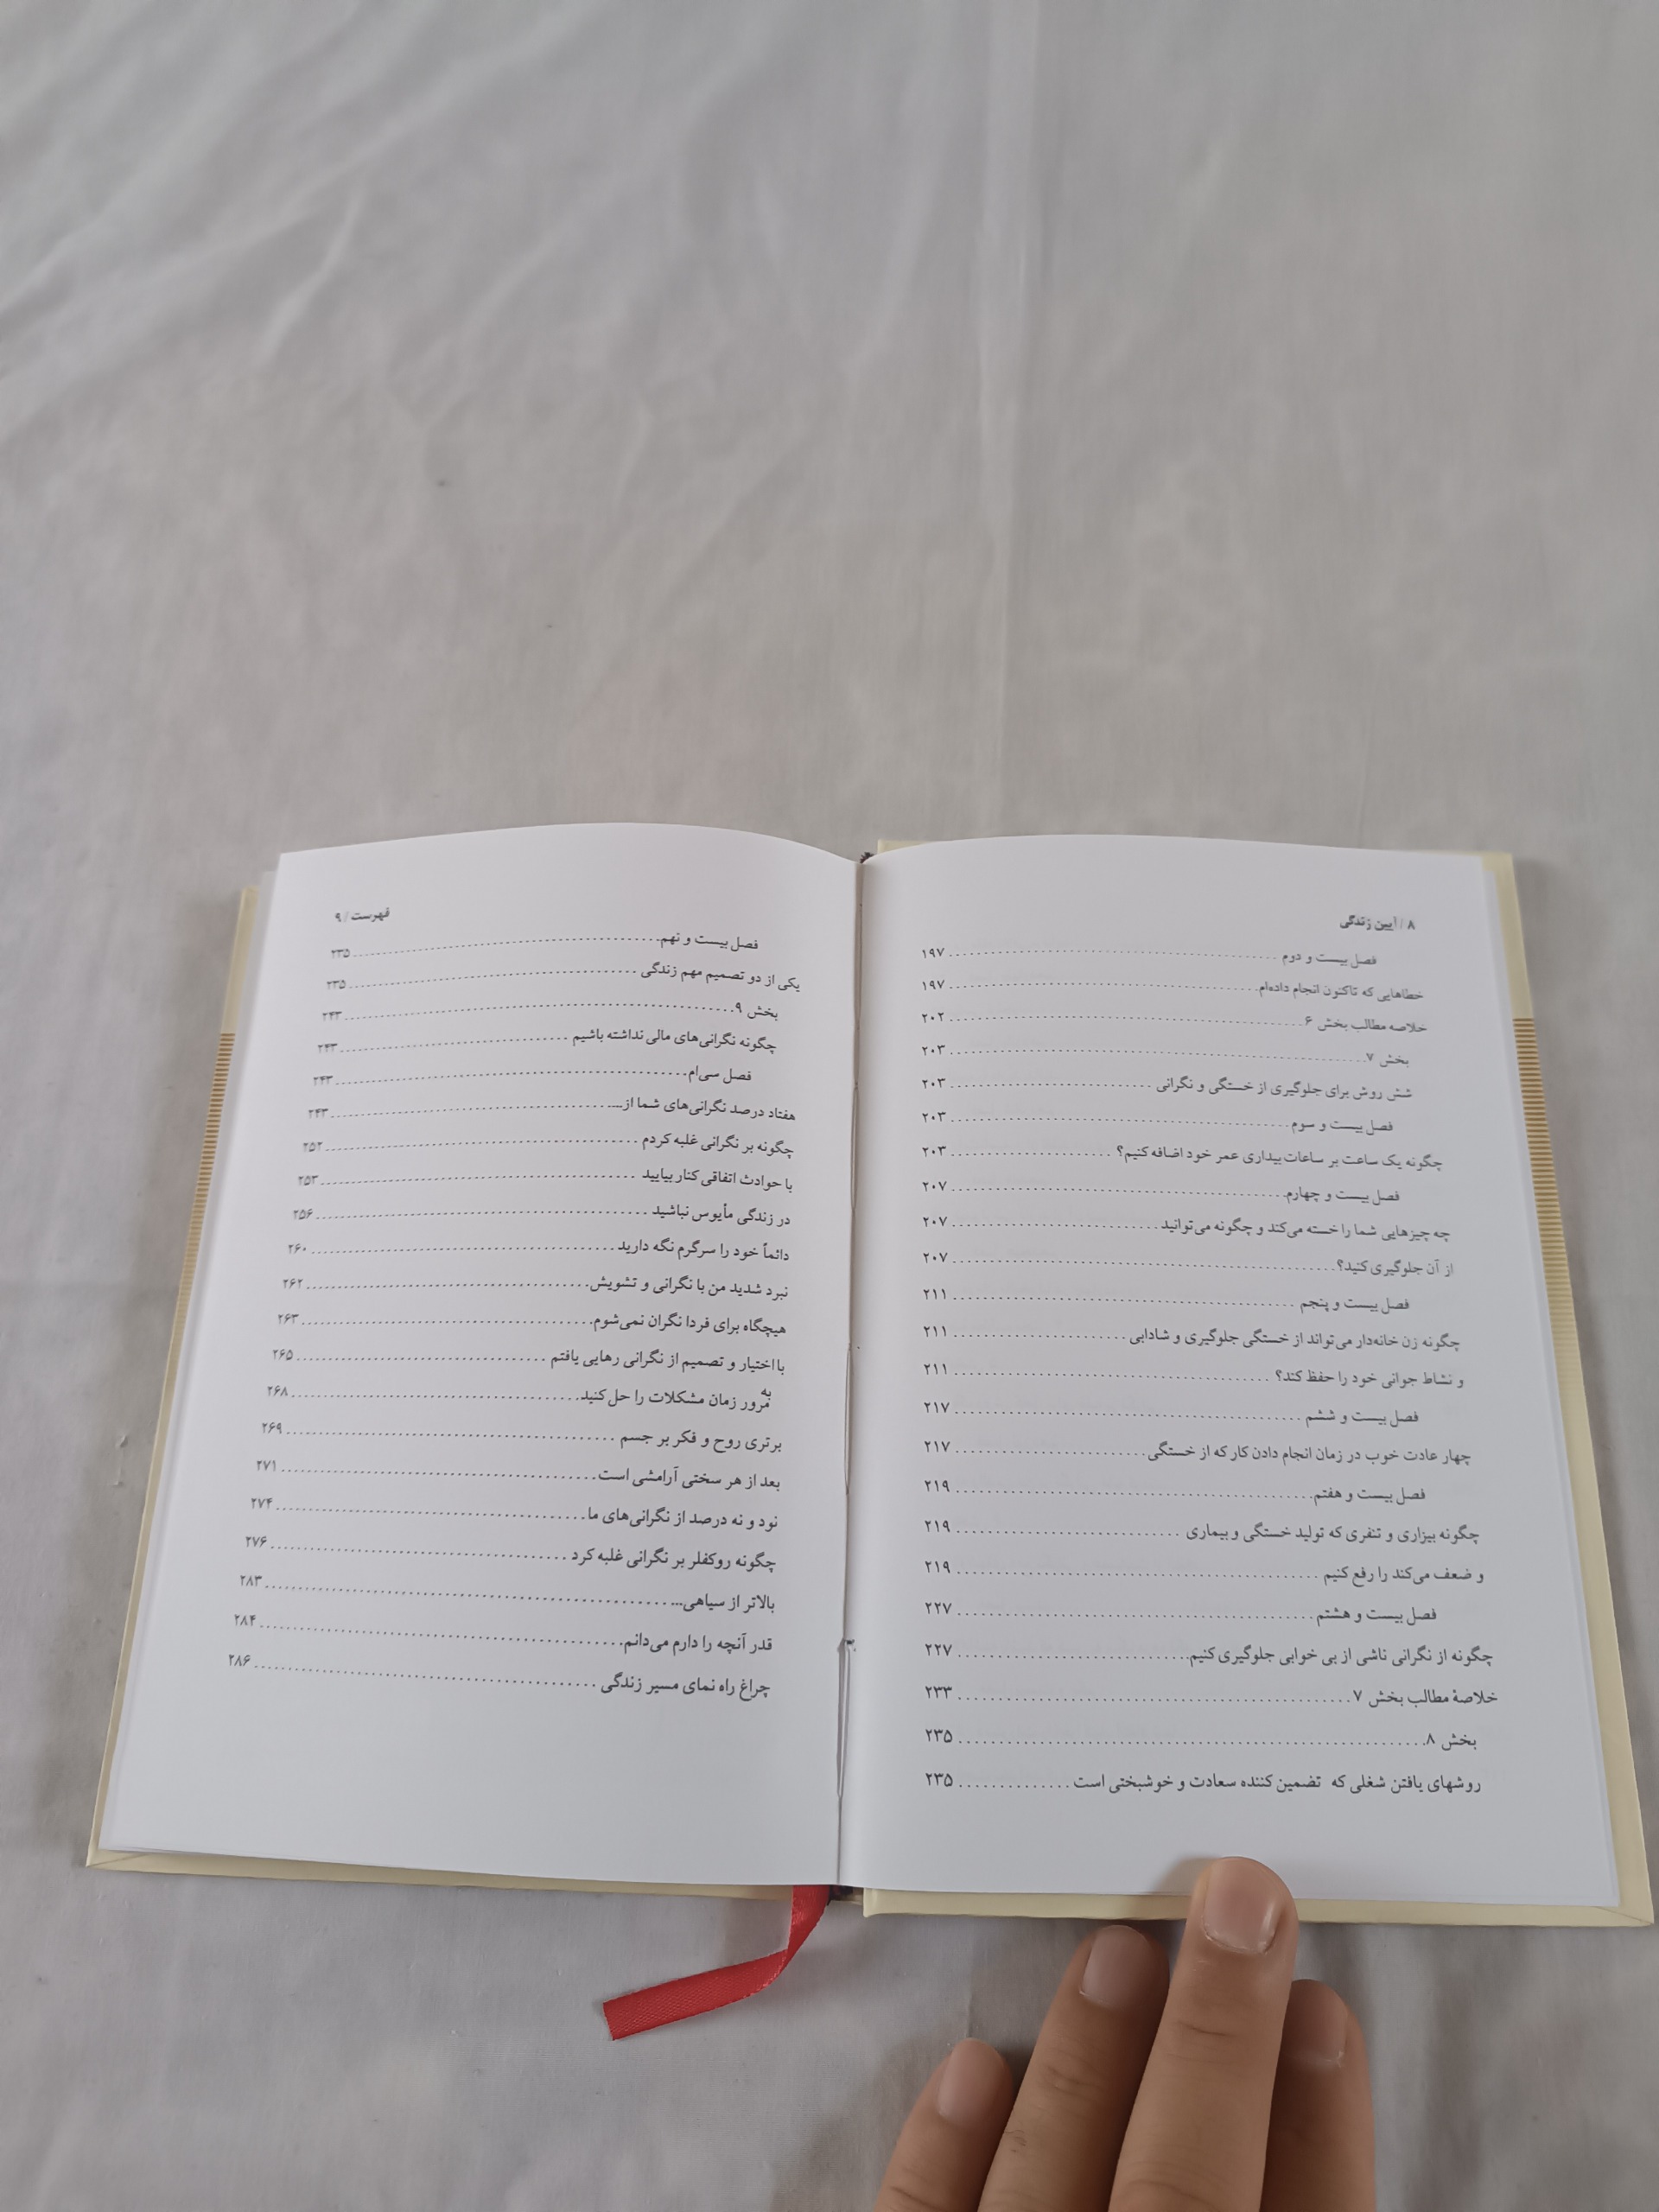 ۸ / آیین زندگی
فصل بیست و دوم ........ ۱۹۷
خطاهایی که تاکنون انجام داده‌ام ........ ۱۹۷
خلاصه مطالب بخش ۶ ........ ۲۰۲
بخش ۷ ........ ۲۰۳
شش روش برای جلوگیری از خستگی و نگرانی ........ ۲۰۳
فصل بیست و سوم ........ ۲۰۳
چگونه یک ساعت بر ساعات بیداری عمر خود اضافه کنیم؟ ........ ۲۰۳
فصل بیست و چهارم ........ ۲۰۷
چه چیزهایی شما را خسته می‌کند و چگونه می‌توانید ........ ۲۰۷
از آن جلوگیری کنید؟ ........ ۲۰۷
فصل بیست و پنجم ........ ۲۱۱
چگونه زن خانه‌دار می‌تواند از خستگی جلوگیری و شادابی ........ ۲۱۱
و نشاط جوانی خود را حفظ کند؟ ........ ۲۱۱
فصل بیست و ششم ........ ۲۱۷
چهار عادت خوب در زمان انجام دادن کار که از خستگی ........ ۲۱۷
فصل بیست و هفتم ........ ۲۱۹
چگونه بیزاری و تنفری که تولید خستگی و بیماری ........ ۲۱۹
و ضعف می‌کند را رفع کنیم ........ ۲۱۹
فصل بیست و هشتم ........ ۲۲۷
چگونه از نگرانی ناشی از بی خوابی جلوگیری کنیم ........ ۲۲۷
خلاصهٔ مطالب بخش ۷ ........ ۲۳۳
بخش ۸ ........ ۲۳۵
روشهای یافتن شغلی که تضمین کننده سعادت و خوشبختی است ........ ۲۳۵
فهرست / ۹
فصل بیست و نهم ........ ۲۳۵
یکی از دو تصمیم مهم زندگی ........ ۲۳۵
بخش ۹ ........ ۲۴۳
چگونه نگرانی‌های مالی نداشته باشیم ........ ۲۴۳
فصل سی‌ام ........ ۲۴۳
هفتاد درصد نگرانی‌های شما از... ........ ۲۴۳
چگونه بر نگرانی غلبه کردم ........ ۲۵۲
با حوادث اتفاقی کنار بیایید ........ ۲۵۳
در زندگی مأیوس نباشید ........ ۲۵۶
دائماً خود را سرگرم نگه دارید ........ ۲۶۰
نبرد شدید من با نگرانی و تشویش ........ ۲۶۲
هیچگاه برای فردا نگران نمی‌شوم ........ ۲۶۳
با اختیار و تصمیم از نگرانی رهایی یافتم ........ ۲۶۵
به مرور زمان مشکلات را حل کنید ........ ۲۶۸
برتری روح و فکر بر جسم ........ ۲۶۹
بعد از هر سختی آرامشی است ........ ۲۷۱
نود و نه درصد از نگرانی‌های ما ........ ۲۷۴
چگونه روکفلر بر نگرانی غلبه کرد ........ ۲۷۶
بالاتر از سیاهی... ........ ۲۸۳
قدر آنچه را دارم می‌دانم ........ ۲۸۴
چراغ راه نمای مسیر زندگی ........ ۲۸۶